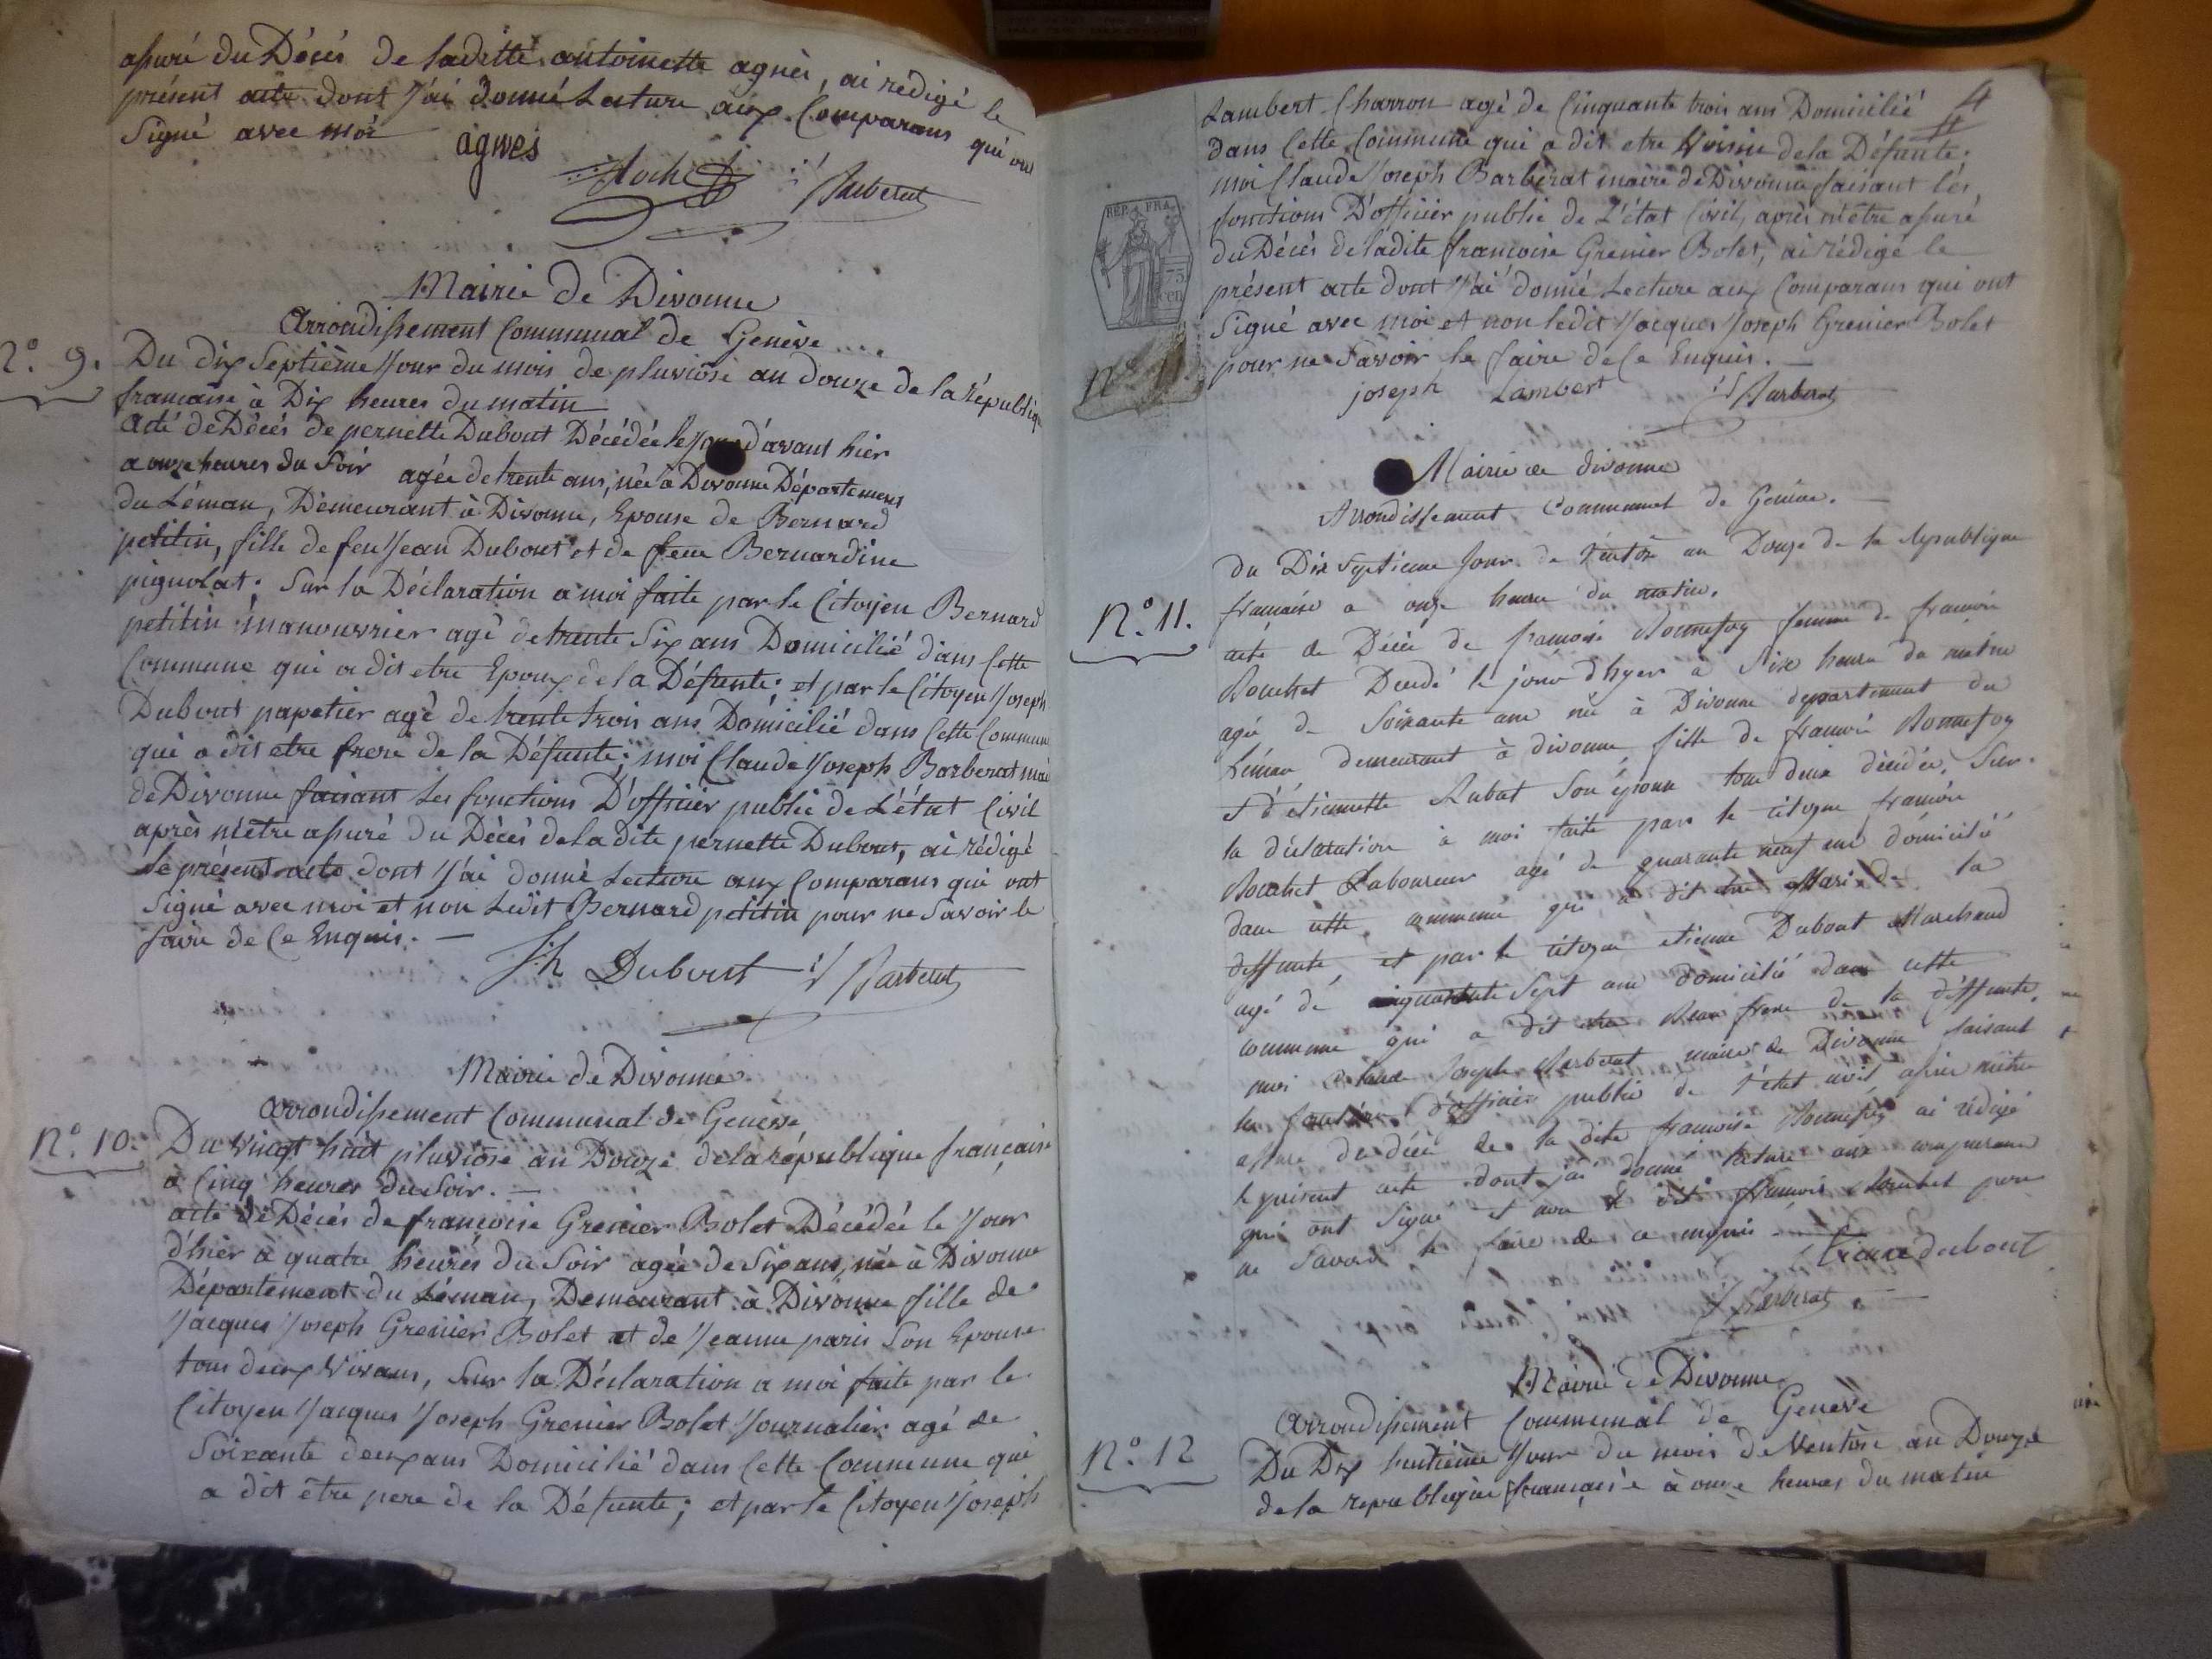 assuré du Décés de laditte antoinette agnès, ai rédigé le
présent acte dont j'ai donné Lecture aux Comparans qui ont
Signé avec moi
agnes
Barberat
Mairie de Divonne
Arrondissement Communal de Genève
N.° 9.
Du dix Septième Jour du mois de pluviose an douze de la république
francaise à Dix heures du matin
Acte de Décés de pernette Dubout Décédée le jour d'avant hier
a onze heures du Soir agée de trente ans, née à Divonne Département
du Léman, Demeurant à Divonne, Epouse de Bernard
petitin, fille de feu Jean Dubout et de feue Bernardine
pignolat; Sur la Déclaration a moi faite par le Citoyen Bernard
petitin manouvrier agé de trente Six ans Domicilié dans Cette
Commune qui a dit etre Epoux de la Défunte; et par le Citoyen Joseph
Dubout papetier agé de trente trois ans Domicilié dans Cette Commune
qui a dit etre frere de la Défunte; moi Claude Joseph Barberat mai
de Divonne faisant Les fonctions D'officier public de L'état Civil
après m'être assuré du Décès de la dite pernette Dubout, ai rédigé
Le présent acte dont j'ai donné Lecture aux Comparans qui ont
Signé avec moi et non Ledit Bernard petitin pour ne Savoir le
faire de Ce Enquis.
Jh Dubout Barberat
Mairie de Divonne
Arrondissement Communal de Genève
N.° 10.
Du vingt huit pluviose an Douze de la république française
à Cinq heures du Soir.
acte de Décés de françoise Grenier Bolet Décédée le Jour
d'hier à quatre heures du Soir agée de Six ans, née à Divonne
Département du Léman, Demeurant à Divonne fille de
Jacques Joseph Grenier Bolet et de Jeanne paris Son Epouse
tous deux Vivans, Sur la Déclaration a moi faite par le
Citoyen Jacques Joseph Grenier Bolet Journalier agé de
Soixante deux ans Domicilié dans Cette Commune qui
a dit être pere de la Défunte; et par le Citoyen Joseph
4
Lambert Charron agé de Cinquante trois ans Domicilié
dans Cette Commune qui a dit etre Voisin de la Défunte;
moi Claude Joseph Barberat maire de Divonne faisant les
fonctions D'officier public de L'état Civil, après m'être assuré
du Décés de ladite françoise Grenier Bolet, ai rédigé le
présent acte dont j'ai donné Lecture aux Comparans qui ont
Signé avec moi et non ledit Jacques Joseph Grenier Bolet
pour ne Savoir le faire de Ce Enquis.
REP. FRA.
75
cen
joseph Lambert Barberat
Mairie de divonne
Arrondissement Communal de Genève.
N.° 11.
du Dix Septieme Jour de Ventose an Douze de la republique
francaise a onze heure du matin.
acte de Décés de françoise Bonnefoy femme de francois
Bouchet Décedé le jour d'hyer à Six heure du matin
agé de Soixante ans né à Divonne departement du
Léman demeurant à divonne fille de francois Bonnefoy
et d'étiennette Rubat Son épouse tous deux décédés, Sur
la déclaration à moi faite par le citoyen francois
Bouchet Laboureur agé de quarante neuf ans domicilié
dans cette commune qui a dit etre Mari de la
deffunte, et par le citoyen etienne Dubout Marchand
agé de Sept ans domicilié dans cette
commune qui a dit etre Beau frere de la déffunte,
moi claude Joseph Barberat maire de Divonne faisant
les fonctions d'officier public de l'état civil après m'etre
assuré du décé de la dite francoise Bonnefoy ai rédigé
le présent acte dont j'ai donné lecture aux comparans
qui ont Signé et non le dit francois Bouchet pour
ne Savoir le faire de ce enquis
Etiene dubout
Barberat
Mairie de Divonne
Arrondissement Communal de Genève
N.° 12
Du Dix huitième Jour du mois de Ventose an Douze
de la republique française à onze heures du matin